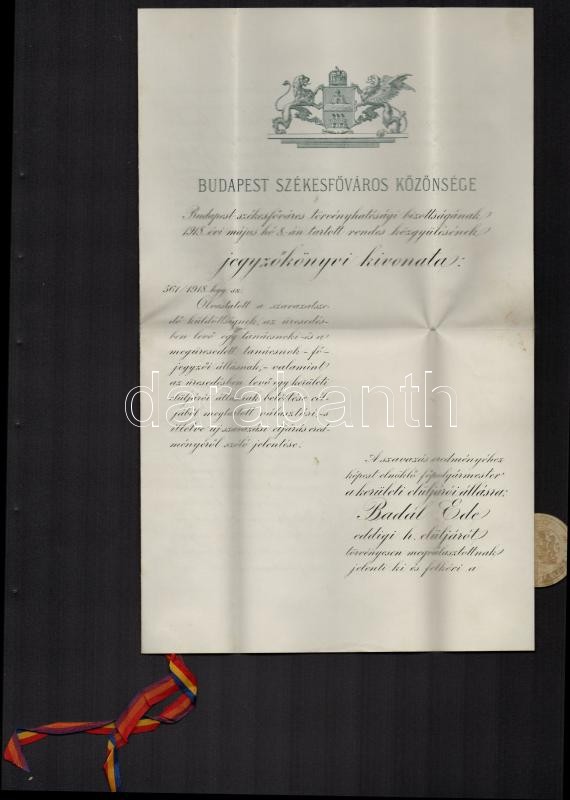 BUDAPEST SZÉKESFŐVÁROS KÖZÖNSÉGE
Budapest székesfőváros törvényhatósági bizottságának
1918. évi május hó 8-án tartott rendes közgyűlésének
jegyzőkönyvi kivonata:
561/1918. kgy. sz.
Olvastatott a szavazatsze-
dő küldöttségnek, az üresedés-
ben levő egy tanácsnoki- és a
megüresedett tanácsnok-fő-
jegyzői állásnak,- valamint
az üresedésben levő egy kerületi
elüljárói állásnak betöltése cél-
jából megtartott választási, s
illetve új szavazási eljárás ered-
ményéről szóló jelentése.
darabanth
A szavazás eredményéhez
képest elnöklő főpolgármester
a kerületi elüljárói állásra:
Badál Ede
eddigi h. elüljárót
törvényesen megválasztottnak
jelenti ki és felkéri a